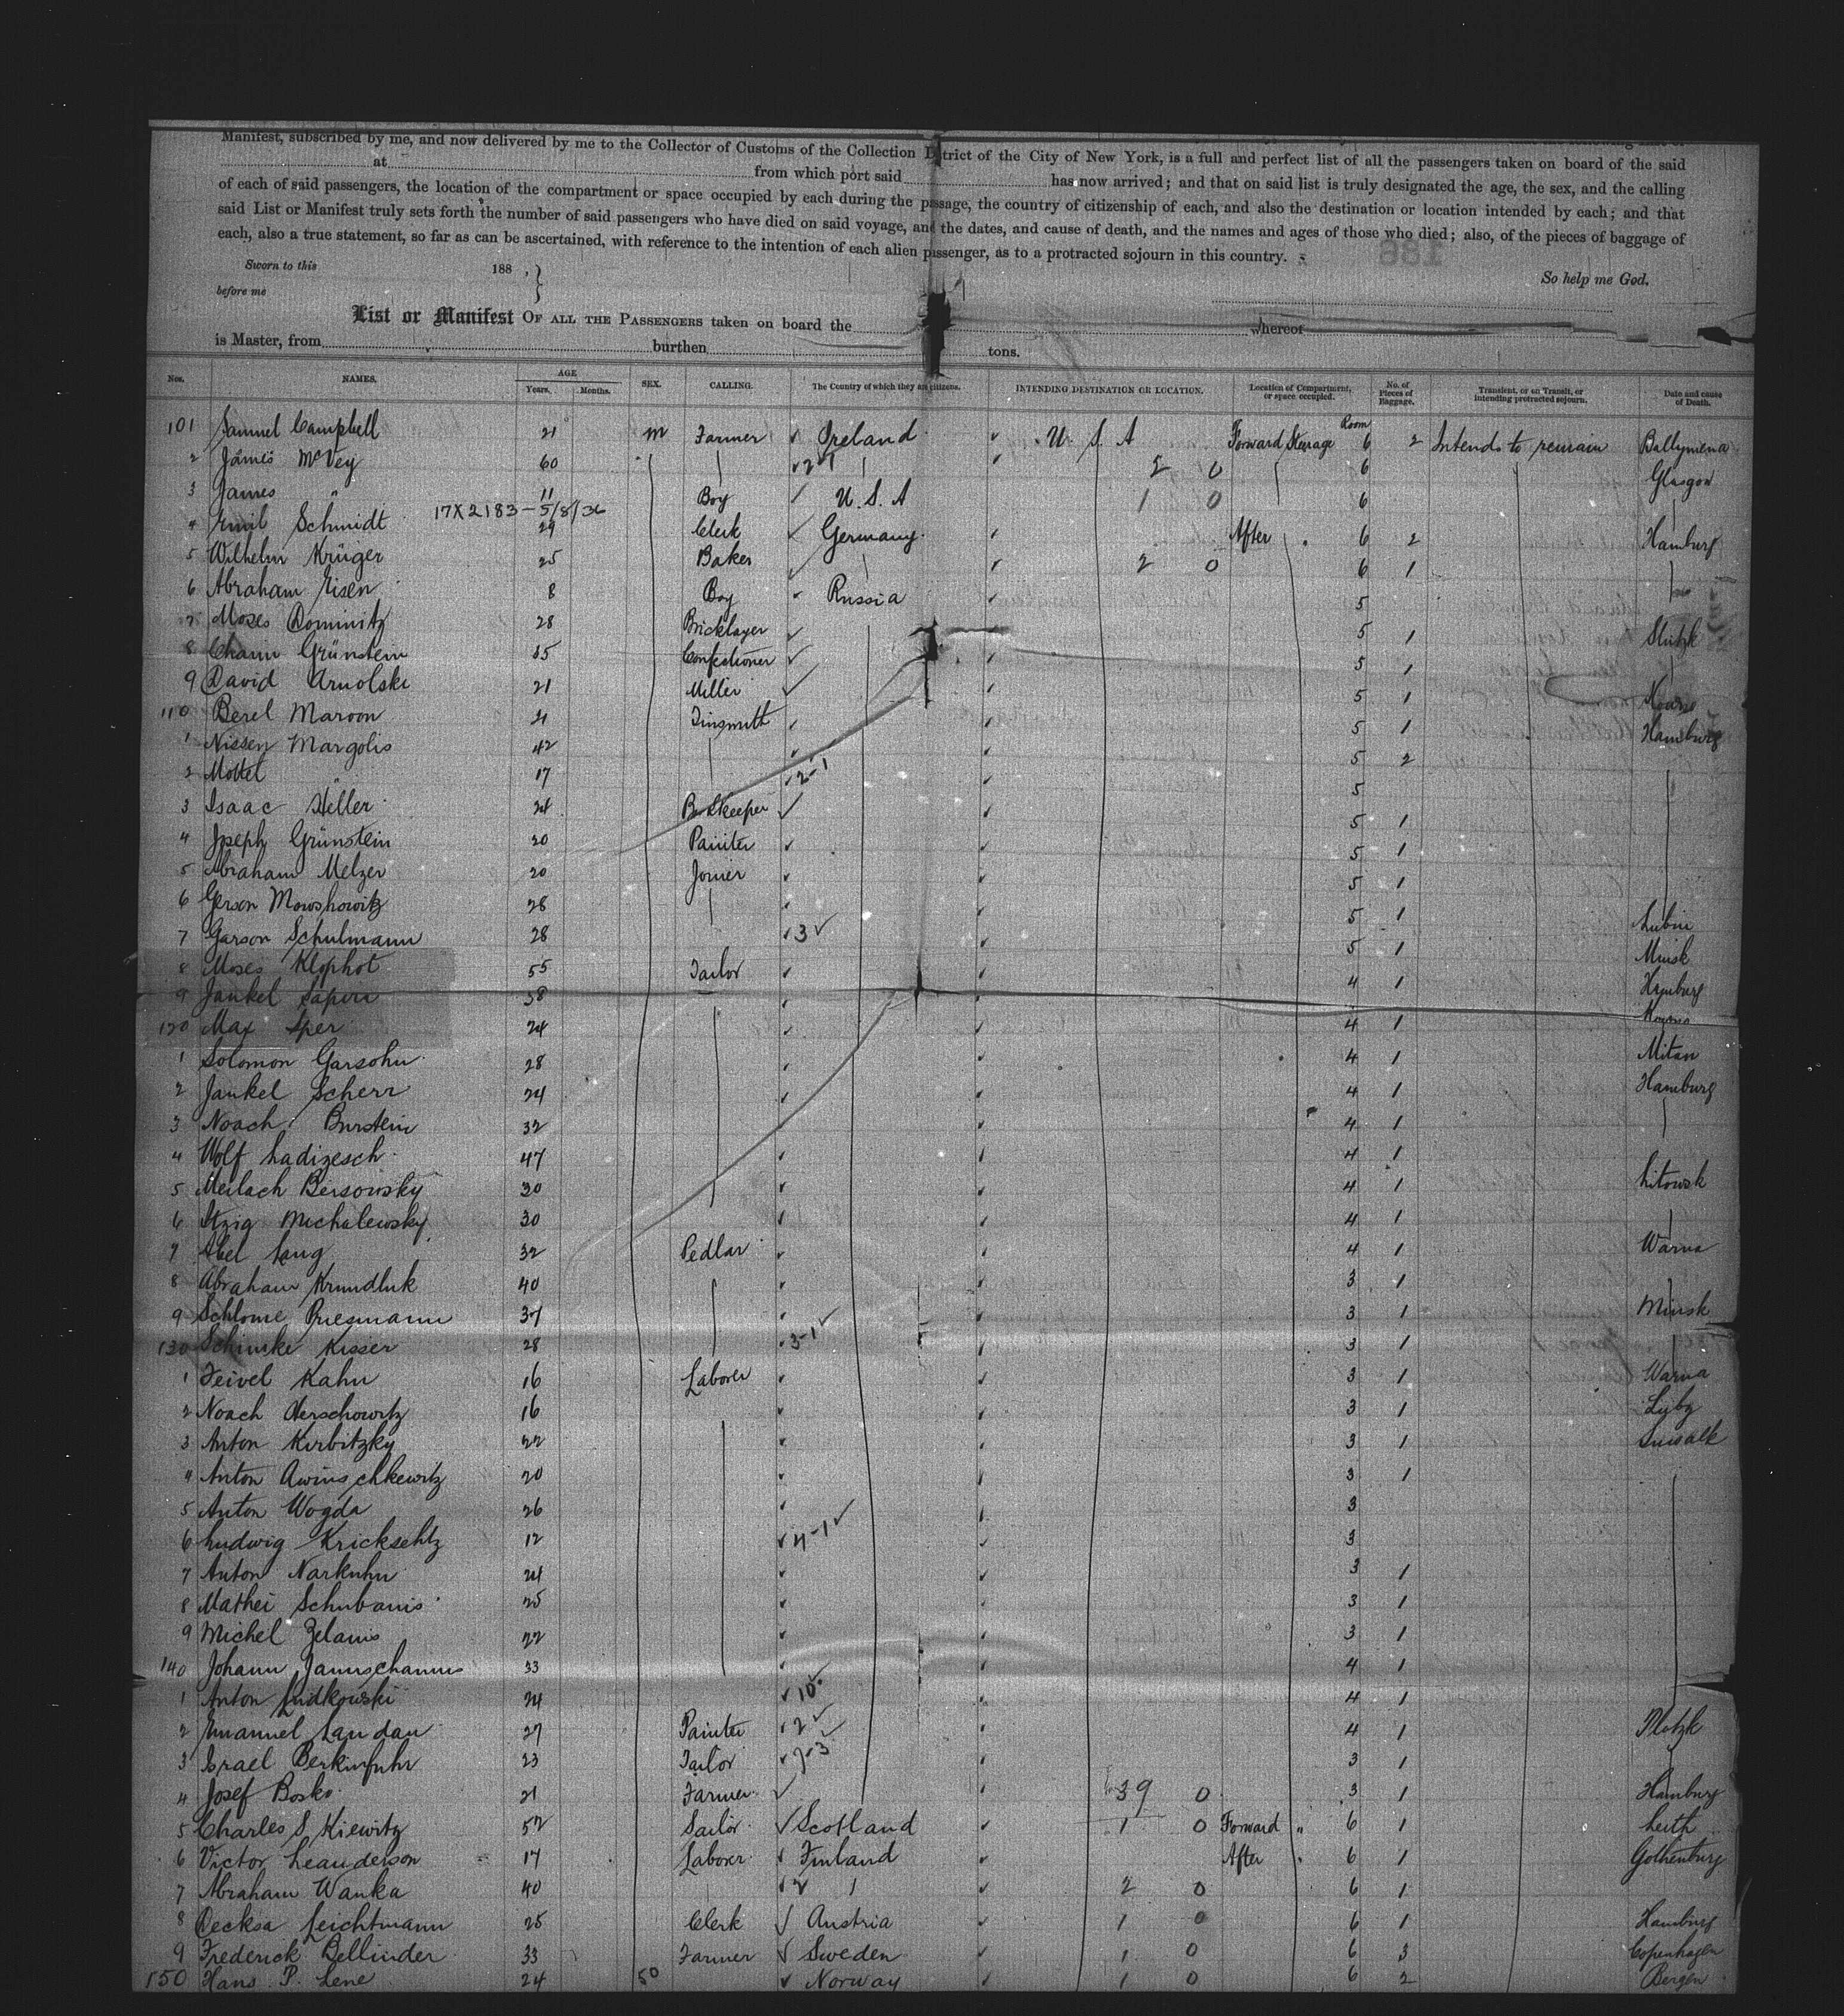 Manifest, subscribed by me, and now delivered by me to the Collector of Customs of the Collection District of the City of New York, is a full and perfect list of all the passengers taken on board of the said
at from which port said has now arrived; and that on said list is truly designated the age, the sex, and the calling
of each of said passengers, the location of the compartment or space occupied by each during the passage, the country of citizenship of each, and also the destination or location intended by each; and that
said List or Manifest truly sets forth the number of said passengers who have died on said voyage, and the dates, and cause of death, and the names and ages of those who died; also, of the pieces of baggage of
each, also a true statement, so far as can be ascertained, with reference to the intention of each alien passenger, as to a protracted sojourn in this country.
Sworn to this 188 , So help me God.
before me
List or Manifest OF ALL THE PASSENGERS taken on board the whereof
is Master, from burthen tons.
Nos. NAMES. AGE Years. Months. SEX. CALLING. The Country of which they are citizens. INTENDING DESTINATION OR LOCATION. Location of Compartment, or space occupied. No. of Pieces of Baggage. Transient, or on Transit, or intending protracted sojourn. Date and cause of Death.
101 Samuel Campbell 21 M Farmer Ireland U. S. A Forward Steerage Room 6 2 Intends to remain Ballymena
2 James McVey 60 2-1 2 0 6 Glasgow
3 James " 11 Boy U. S. A 1 0 6
17X2183-5/8/36
4 Emil Schmidt 29 Clerk Germany After " 6 2 Hamburg
5 Wilhelm Krüger 25 Baker 2 0 6 1
6 Abraham Eisen 8 Boy Russia 5
7 Moses Dominitz 28 Bricklayer 5 1 Slutzk
8 Chaim Grünstein 35 Confectioner 5 1
9 David Arnolski 21 Miller 5 1
110 Berel Maroon 21 Tinsmith 5 1 Hamburg
1 Nissen Margolis 42 5 2
2 Mottel " 17 2-1 5
3 Isaac Heller 24 Bookkeeper 5 1
4 Joseph Grünstein 20 Painter 5 1
5 Abraham Melzer 20 Joiner 5 1
6 Gerson Mowshowitz 28 5 1 Lubin
7 Garson Schulmann 28 3 5 1 Minsk
8 Moses Klophot 55 Tailor 4 1 Hamburg
9 Jankel Sapiri 38
120 Max Sper 24 4 1
1 Solomon Garsohn 28 4 1 Mitau
2 Jankel Scherr 24 4 1 Hamburg
3 Noach Burstein 32 4 1
4 Wolf Ladizesch 47 4 1
5 Meilach Bersowsky 30 4 1 Litowsk
6 Itzig Michalewsky 30 4 1
7 Abel Lang 32 Pedlar 4 1 Warna
8 Abraham Krundluk 40 3 1
9 Schlome Presmann 37 3 1 Minsk
130 Schimke Kisser 28 3-1 3 1
1 Feivel Kahn 16 Laborer 3 1 Warna
2 Noach Herschowitz 16 3 1
3 Anton Kurbitzky 22 3 1 Suwalk
4 Anton Awinschkewitz 20 3 1
5 Anton Wogda 26 3
6 Ludwig Krickschtz 12 4-1 3
7 Anton Narkuhn 24 3 1
8 Mathei Schubanis 25 3 1
9 Michel Zelanis 22 3 1
140 Johann Januschannis 33 4 1
1 Anton Ludkowski 24 10 4 1
2 Emanuel Landau 27 Painter 2 4 1 Plotzk
3 Israel Berkinfuhr 23 Tailor 7-3 3 1
4 Josef Bosko 21 Farmer 39 0 3 1 Hamburg
5 Charles S Kiewitz 52 Sailor Scotland 1 0 Forward " 6 1 Leith
6 Victor Leanderson 17 Laborer Finland After " 6 1 Gothenburg
7 Abraham Wanka 40 2 2 0 6 1
8 Decksa Leichtmann 25 Clerk Austria 1 0 6 1 Hamburg
9 Frederick Bellinder 33 Farmer Sweden 1 0 6 3 Copenhagen
150 Hans P. Lene 24 50 Norway 1 0 6 2 Bergen